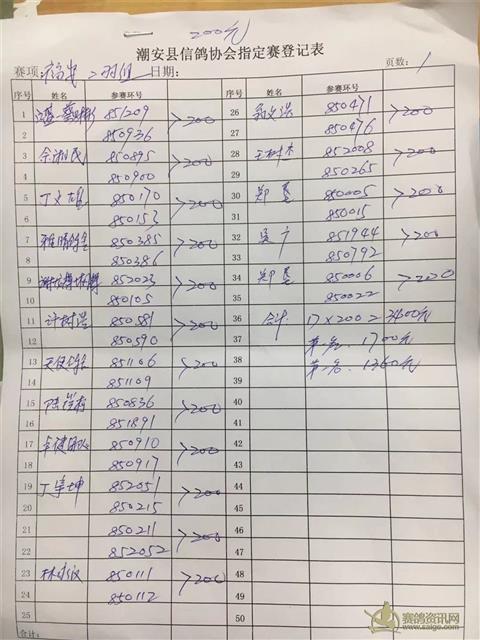 200元
潮安县信鸽协会指定赛登记表
赛项: 二羽组 日期: 页数: 1
序号 姓名 参赛环号 序号 姓名 参赛环号
1 851209 >200 26 850471 >200
2 850936 27 850476
3 余湘民 850895 >200 28 王树杰 852008 >200
4 850900 29 850265
5 丁文雄 850170 >200 30 郑基 850005 >200
6 850153 31 850015
7 850385 >200 32 吴广 851944 >200
8 850386 33 850792
9 852023 >200 34 郑基 850006 >200
10 850105 35 850022
11 许树浩 850581 >200 36 合计: 17×200=3400元
12 850590 37 第一名: 1700元
13 851106 >200 38 第二名: 1360元
14 851109 39
15 850836 >200 40
16 851891 41
17 850910 >200 42
18 850917 43
19 丁宋坤 852051 >200 44
20 850215 45
21 850211 >200 46
22 852052 47
23 850111 >200 48
24 850112 49
25 50
合计:
赛鸽资讯网
www.saige.com